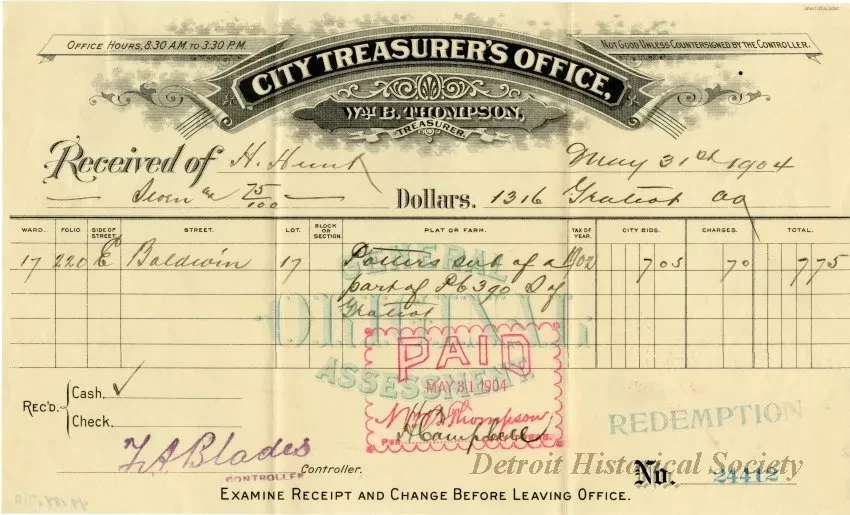 OFFICE HOURS, 8.30 A.M. TO 3.30 P.M.
NOT GOOD UNLESS COUNTERSIGNED BY THE CONTROLLER.
CITY TREASURER'S OFFICE,
WM B. THOMPSON,
TREASURER.
Received of H. Hunt May 31st 1904
Seven and 75/100 Dollars. 1316 Gratiot
WARD. FOLIO. SIDE OF STREET. STREET. LOT. BLOCK OR SECTION. PLAT OR FARM. TAX OF YEAR. CITY BIDS. CHARGES. TOTAL.
17 220 E Baldwin 17 Potters sub of a 1902 7 05 70 7 75
part of P6390 S of
Gratiot
GENERAL
ORIGINAL
ASSESSMENT
PAID
MAY 31 1904
Wm B Thompson
PER Campbell
REC'D. Cash, ✓
Check,
REDEMPTION
F.A. Blades Controller.
CONTROLLER
No. 24412
Detroit Historical Society
EXAMINE RECEIPT AND CHANGE BEFORE LEAVING OFFICE.